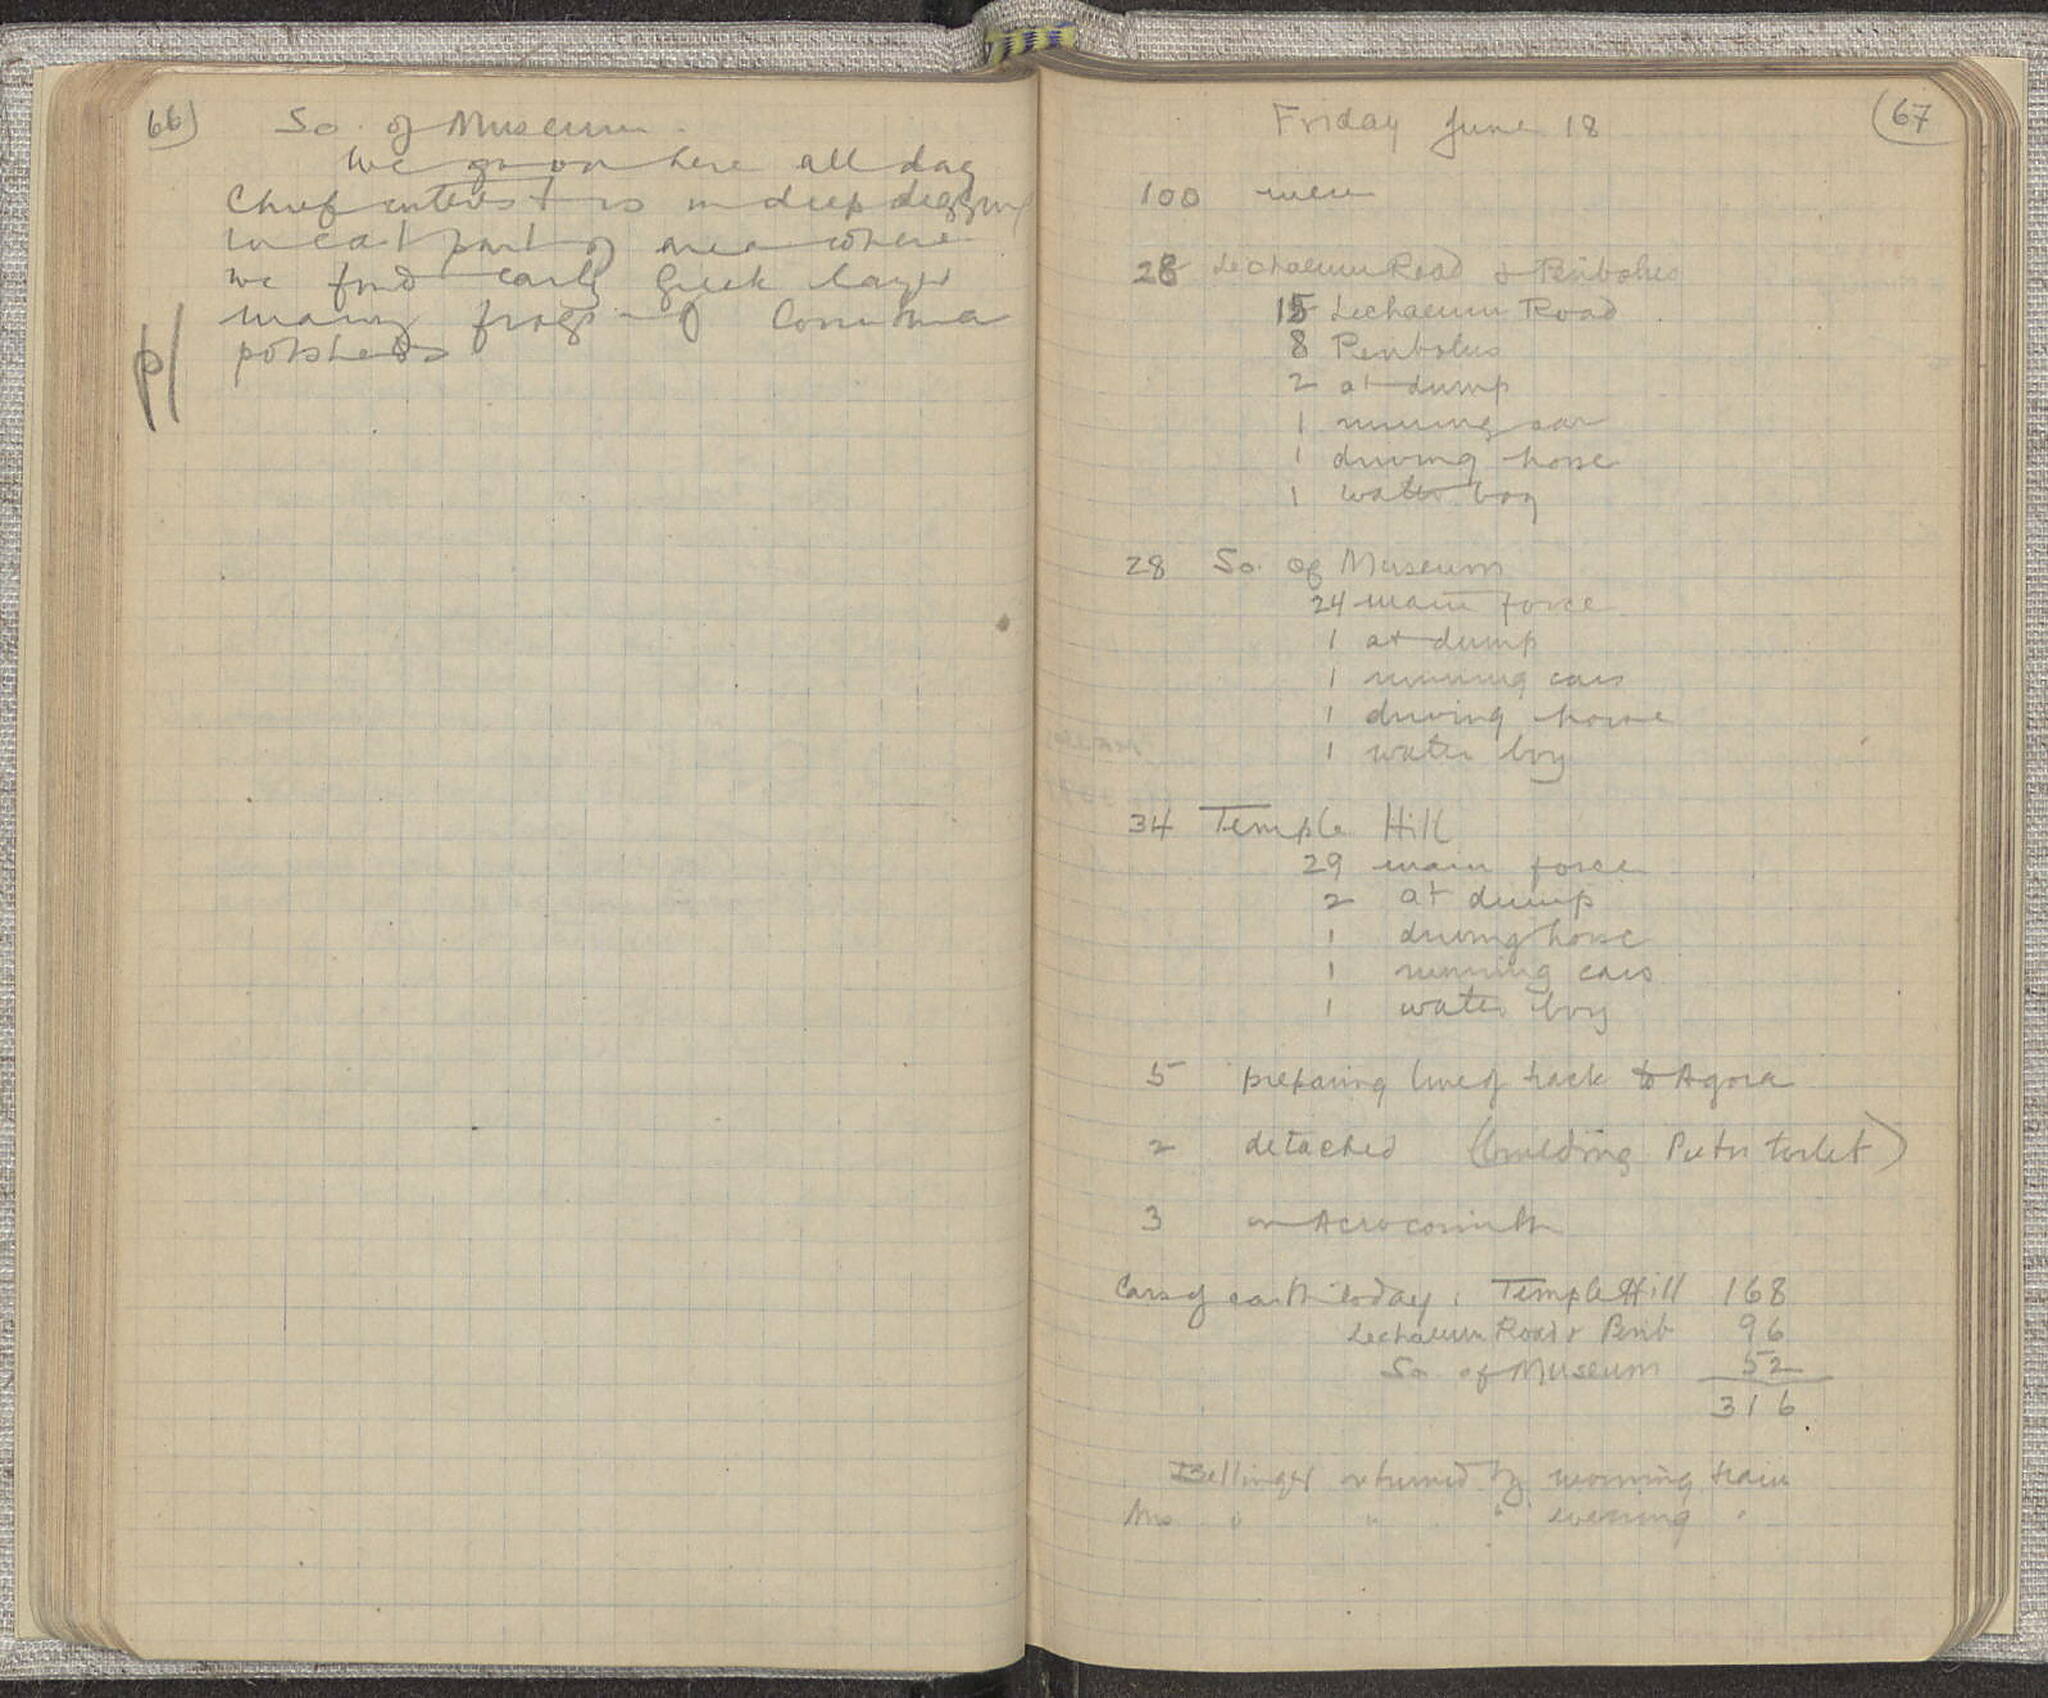 66)
So. of Museum.
We go on here all day
Chief interest is in deep digging
in east part of area where
we find early Greek layer
many frags of Corinthian
potsherds
p/
67
Friday June 18
100 men
28 Lechaeum Road & Peribolus
15 Lechaeum Road
8 Peribolus
2 at dump
1 running car
1 driving horse
1 water boy
28 So. of Museum
24 main force
1 at dump
1 running cars
1 driving horse
1 water boy
34 Temple Hill
29 main force
2 at dump
1 driving horse
1 running cars
1 water boy
5 preparing line of track to Agora
2 detached (building toilet)
3 on Acrocorinth
Cars of earth today: Temple Hill 168
Lechaeum Road & Perib 96
So. of Museum 52
316
Bellinger returned by morning train
Mrs " " " evening "